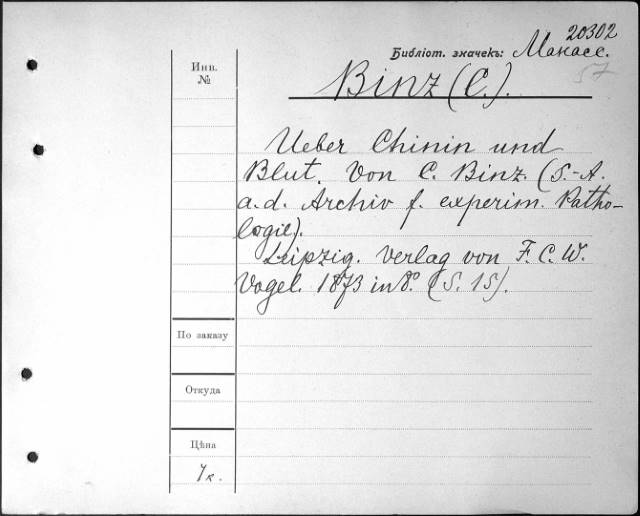 20302
Библіот. значекъ: Манасс.
57
Инв.
№
Binz (C.).
Ueber Chinin und
Blut. Von C. Binz. (S.-A.
a. d. Archiv f. experim. Patho-
logie).
Leipzig. Verlag von F. C. W.
Vogel. 1873 in 8º. (S. 15).
По заказу
Откуда
Цѣна
7 к.